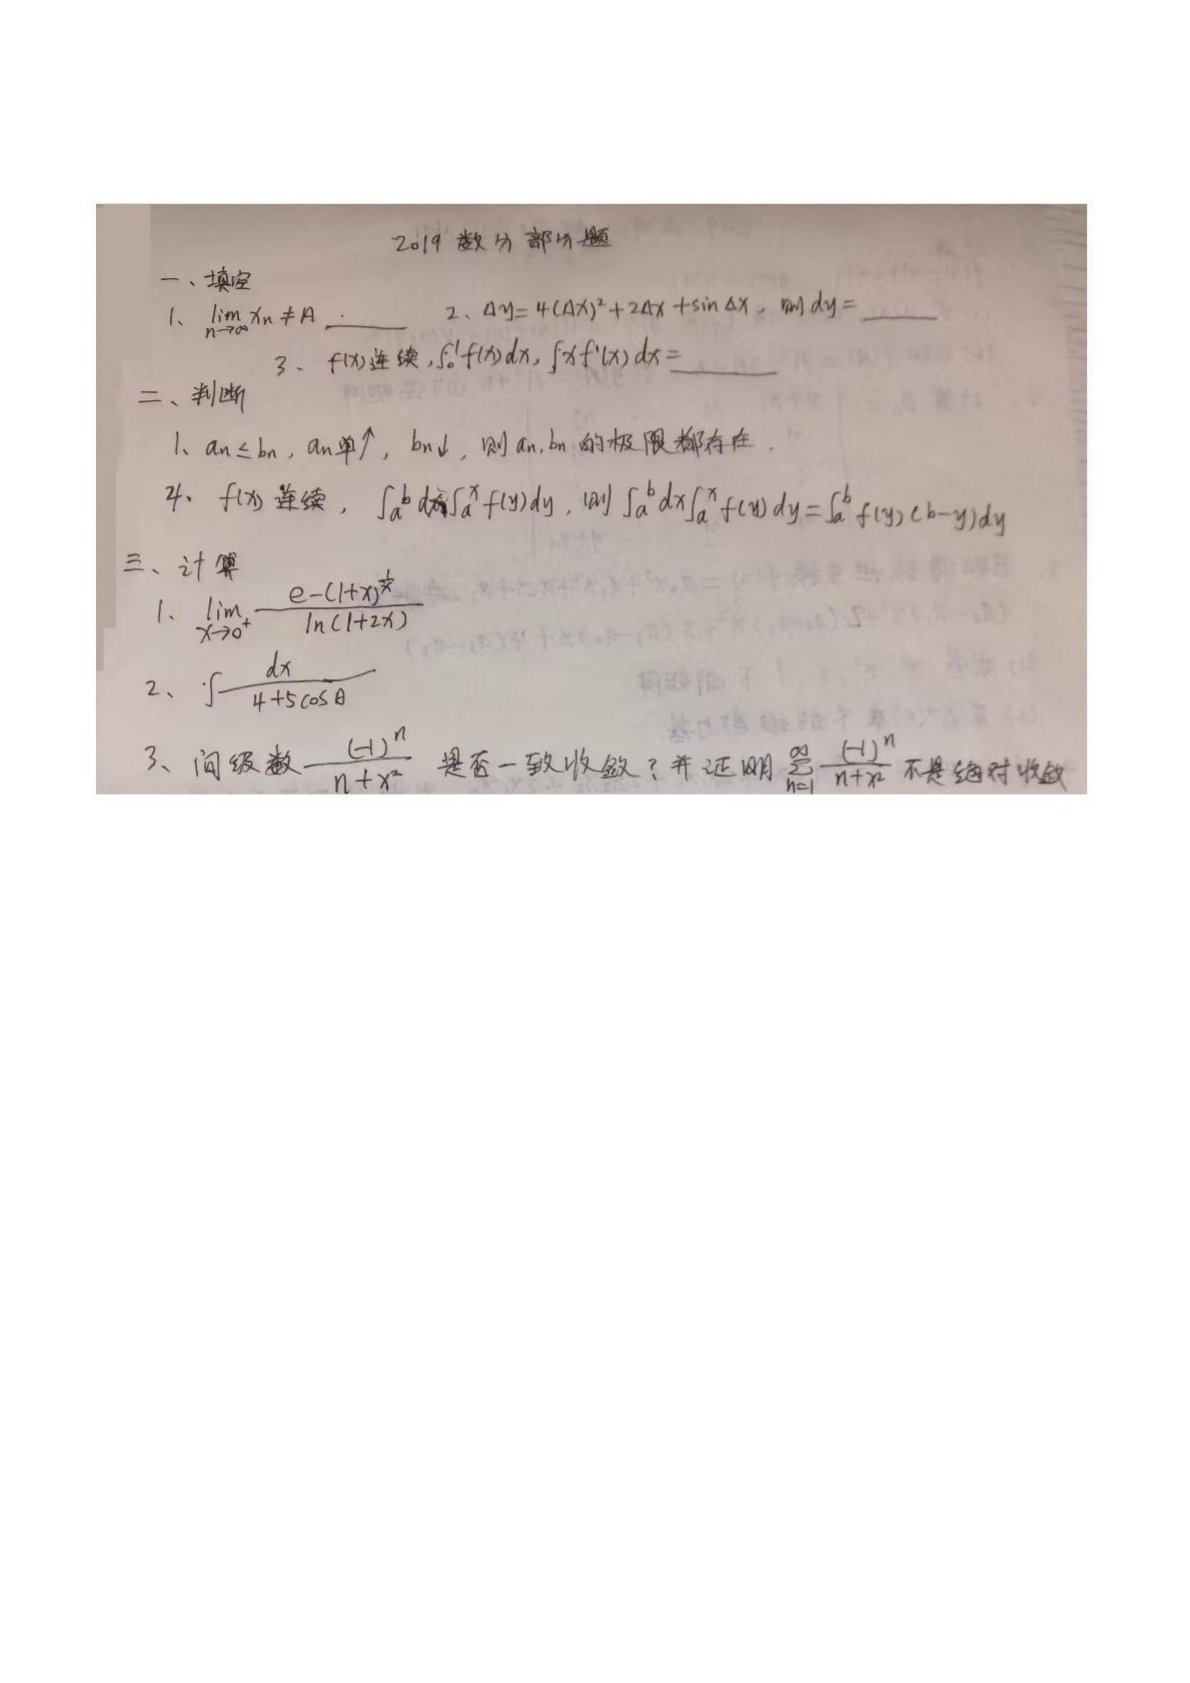 2019 数分部分题
一、填空
1、lim_{n→∞} xn ≠ A ______ 2、Δy = 4(Δx)² + 2Δx + sinΔx，则 dy = ______
3、f(x)连续，∫₀¹ f(x)dx，∫x f'(x) dx = ______
二、判断
1、an ≤ bn，an单↑，bn↓，则 an, bn 的极限都存在.
4、f(x) 连续，∫_a^b dx∫_a^x f(y)dy，则 ∫_a^b dx∫_a^x f(y) dy = ∫_a^b f(y) (b-y)dy
三、计算
1、lim_{x→0⁺} (e-(1+x)^{1/x}) / (ln(1+2x))
2、∫ dx / (4+5cosθ)
3、问级数 (-1)^n / (n+x²) 是否一致收敛？并证明 ∑_{n=1}^∞ (-1)^n / (n+x²) 不是绝对收敛